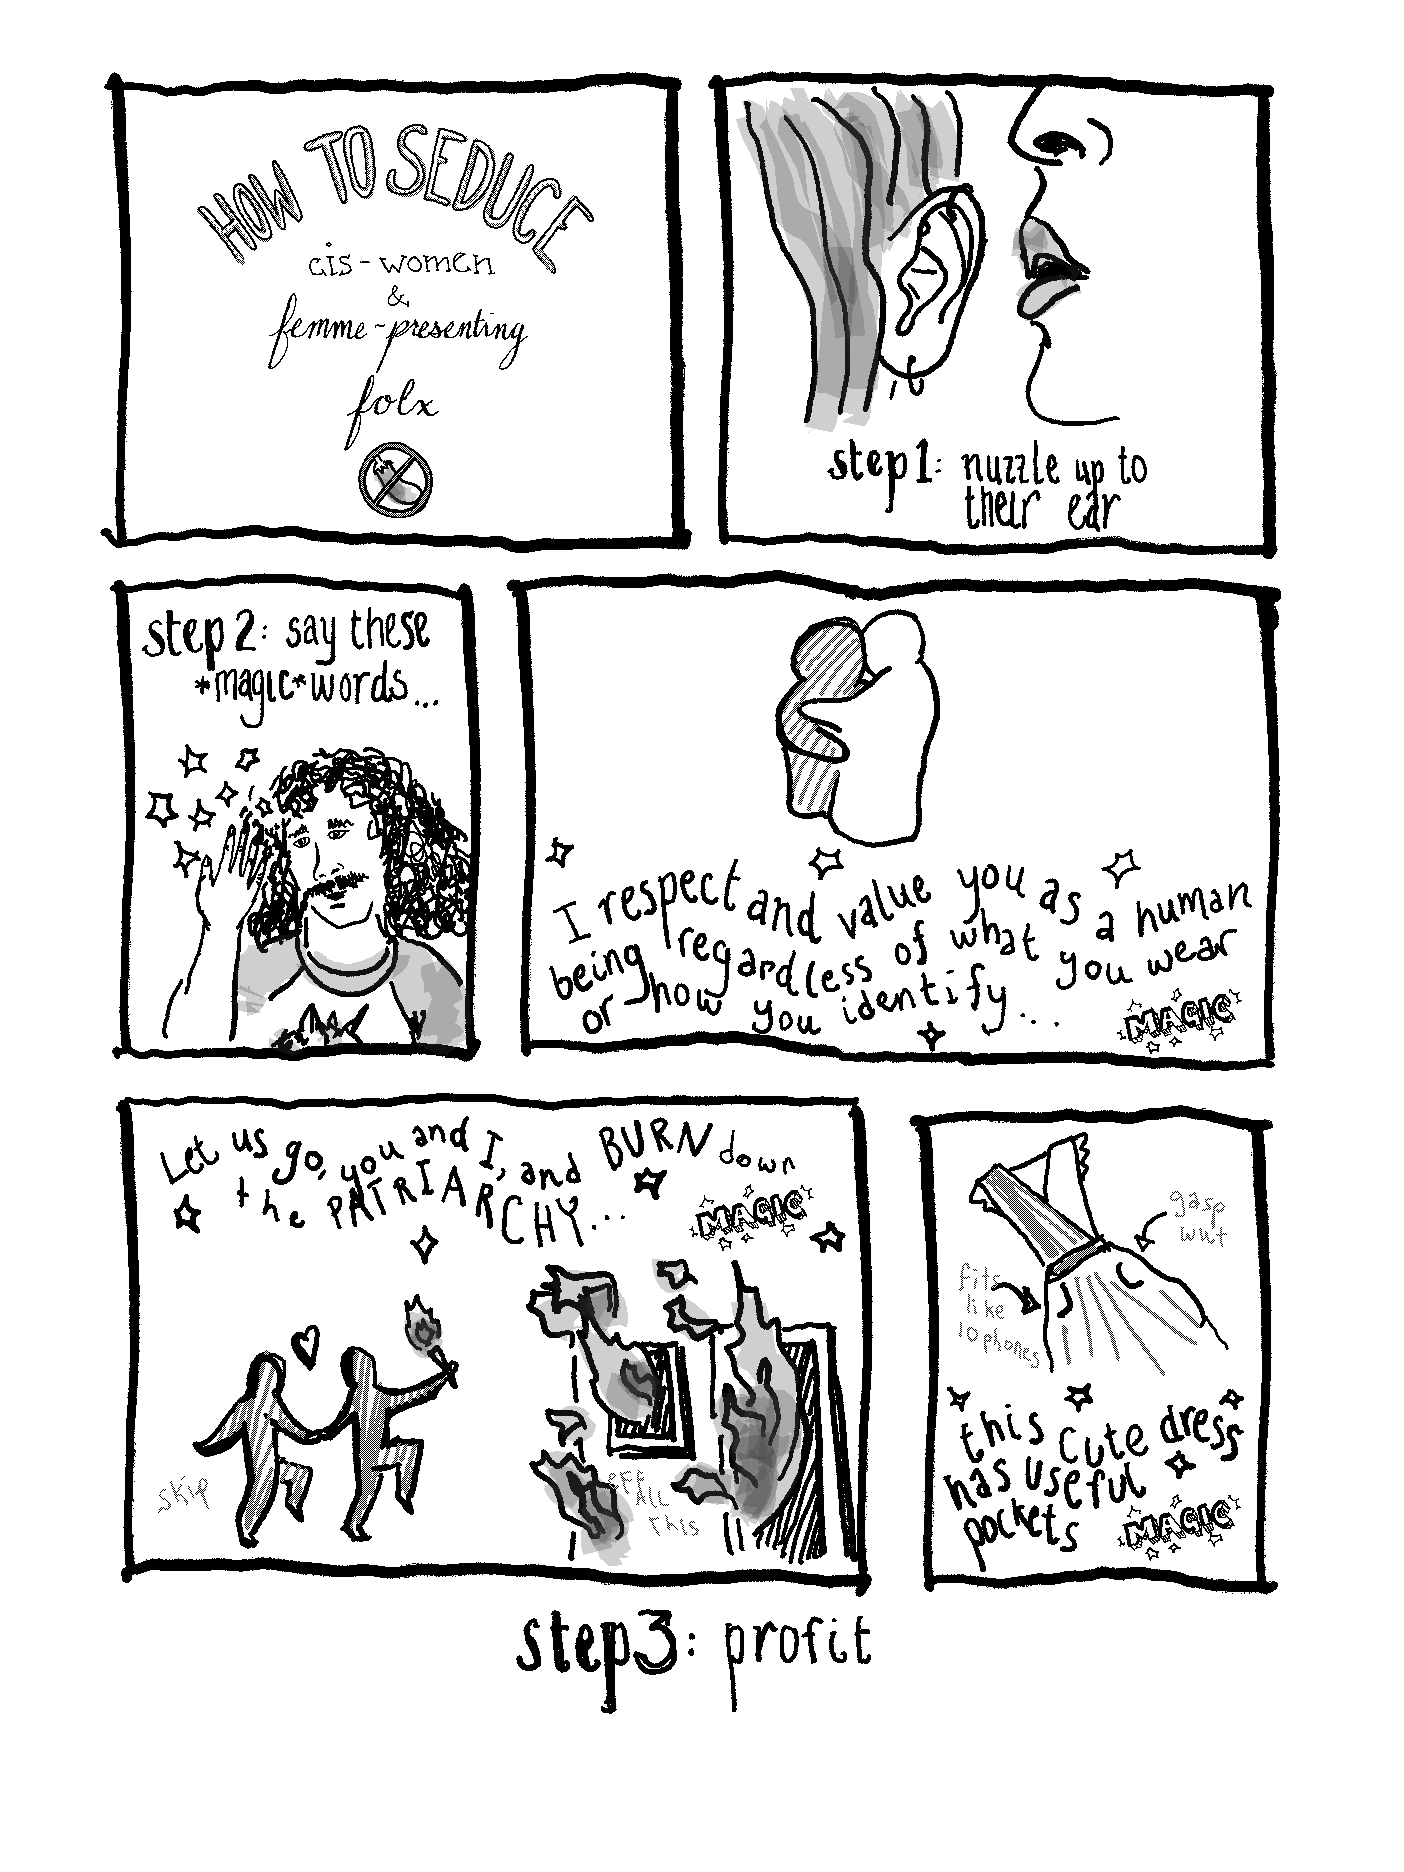 HOW TO SEDUCE
cis-women
&
femme-presenting
folx
step 1: nuzzle up to
their ear
step 2: say these
*magic* words...
I respect and value you as a human
being regardless of what you wear
or how you identify...
MAGIC
Let us go, you and I, and BURN down
the PATRIARCHY...
MAGIC
skip
EFF
ALL
this
gasp
wut
fits
like
10 phones
this cute dress
has useful
pockets
MAGIC
step 3: profit